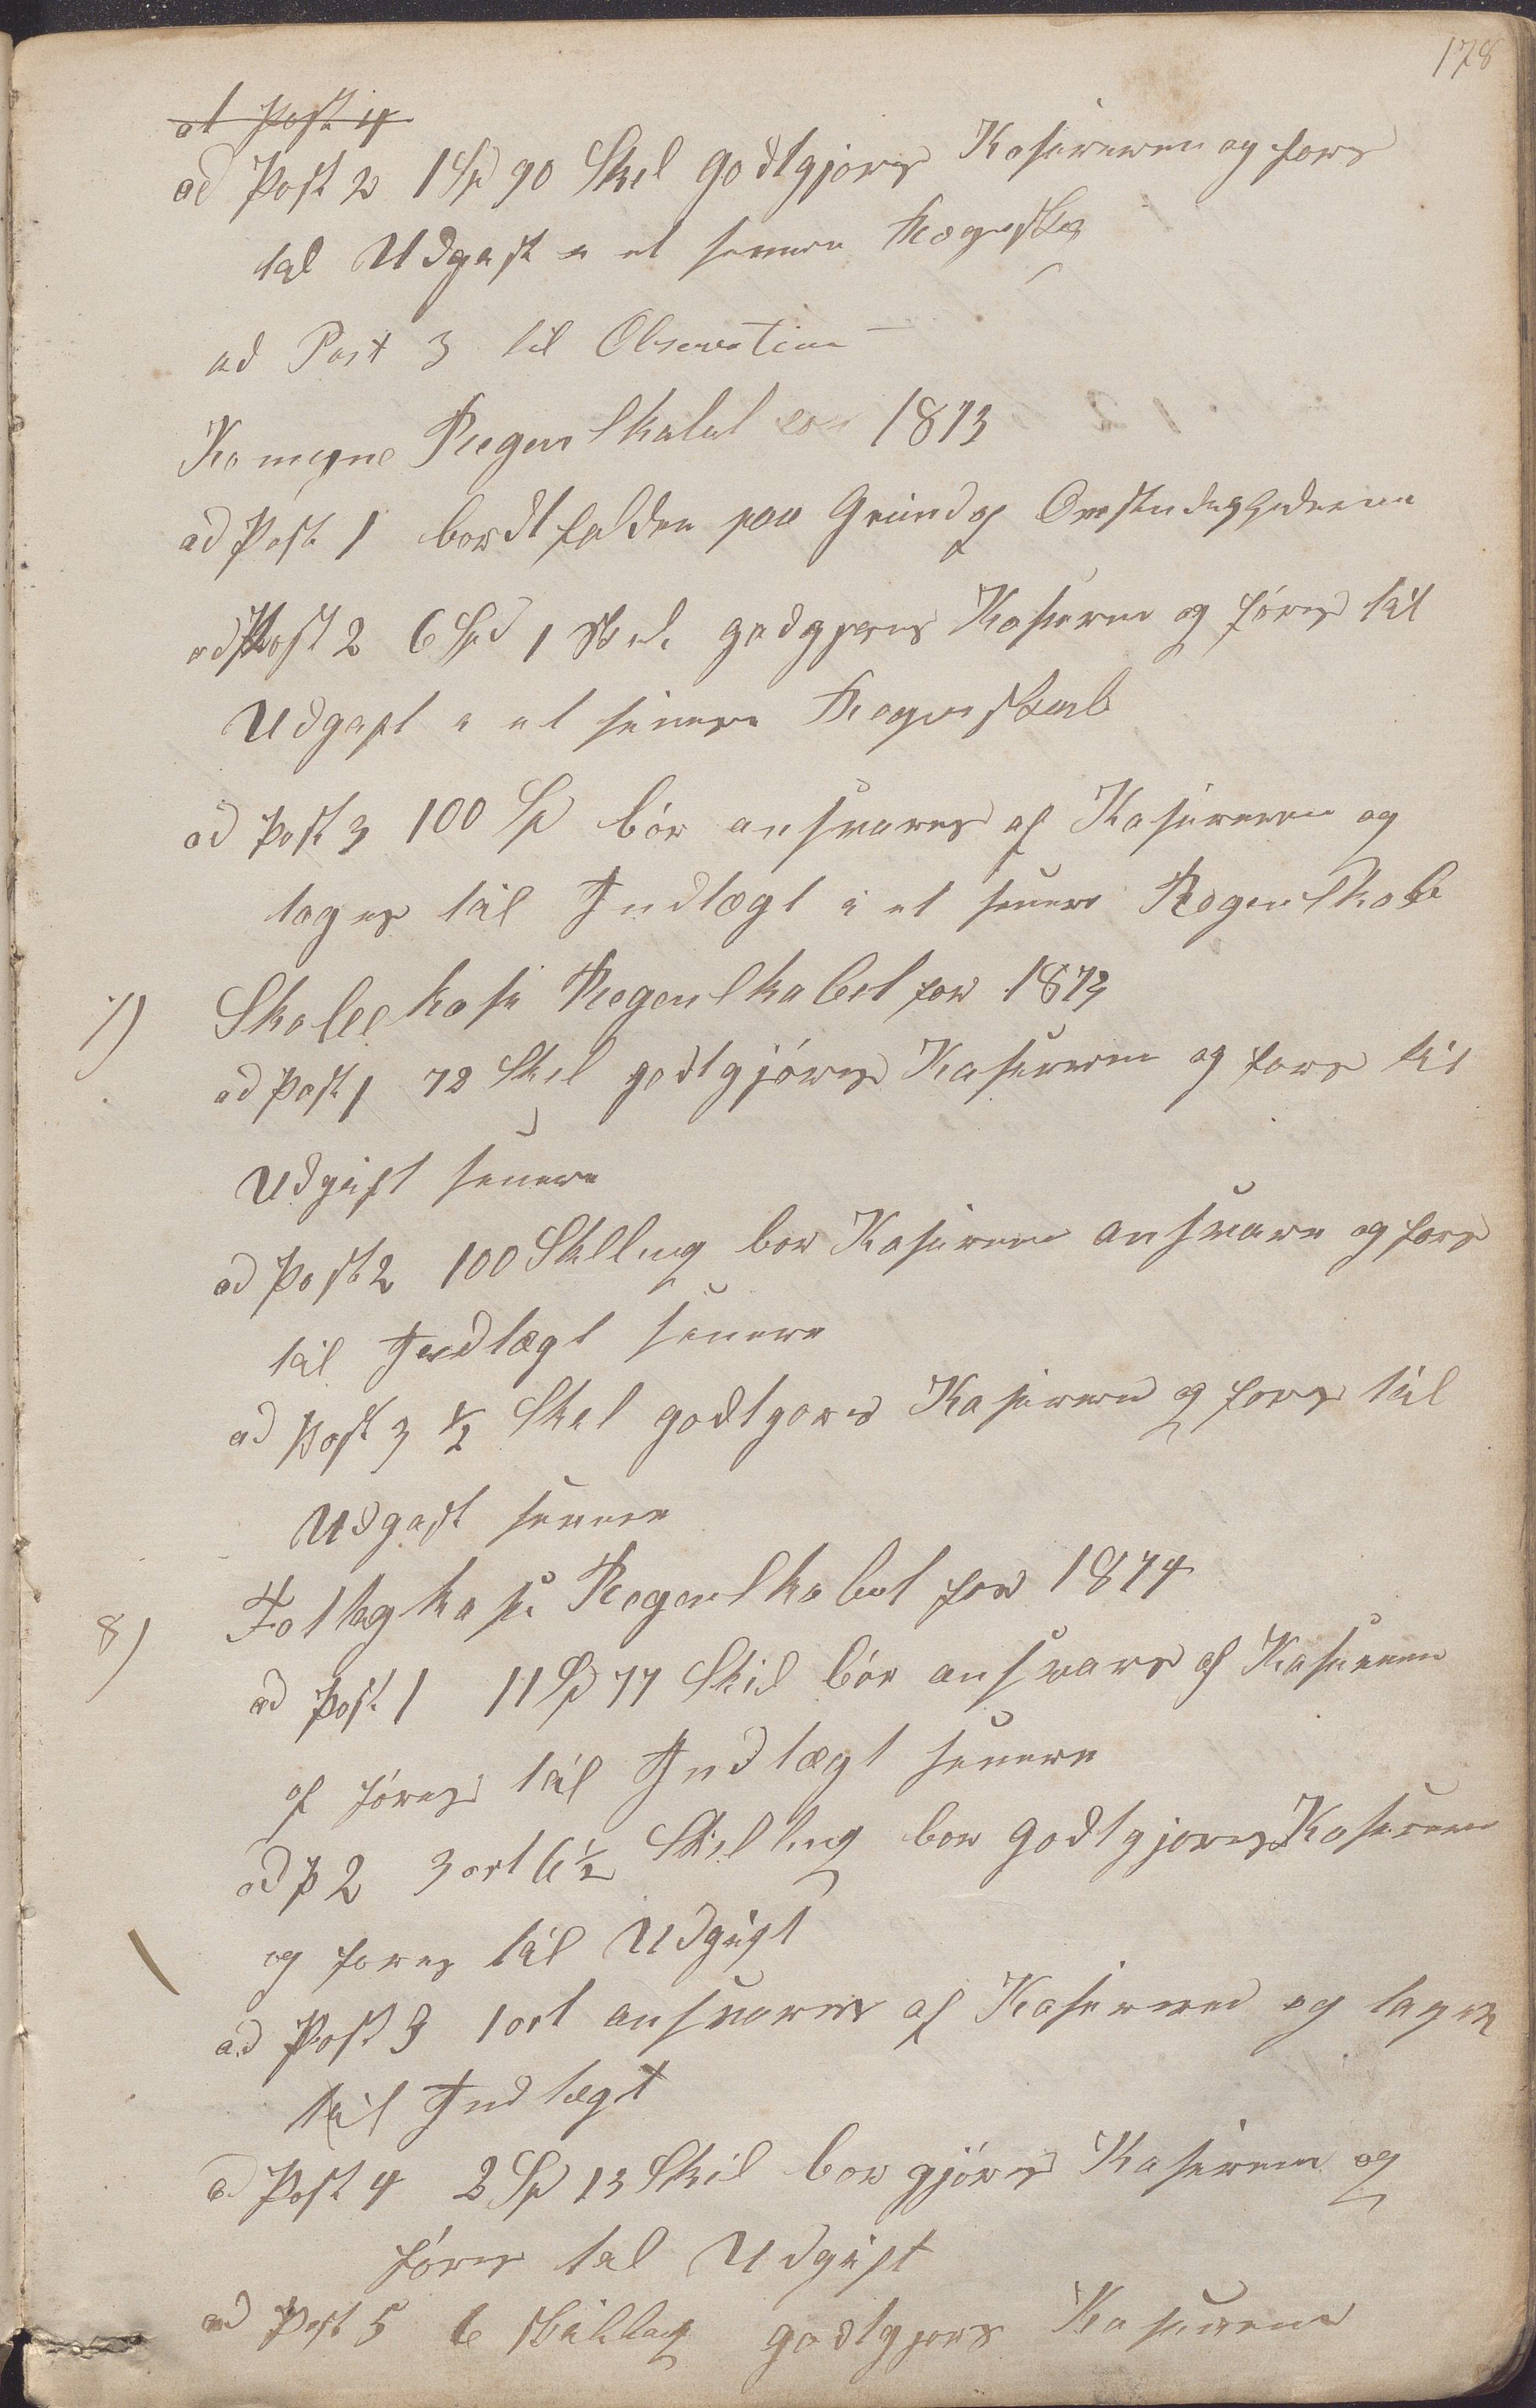 178
ad Post 4
ad Post 2 1 Sp 90 Skil godtgjøres Kasereren og føres
tel Udgeft e et senere Regnska
ad Post 3 til Observation
Komune Regenskabet for 1873
ad Post 1 bordtfalder paa Grund af Omstendeghederne
ad Post 2 6 Spd 1 Skil godgjøres Kaseren og føres til
Udgeft e et senere Regnskab
ad Post 3 100 Sp bør ansvares af Kasereren og
tages til Indtægt i et senere Regenskab
7) Skolekase Regenskabet for 1873
ad Post 1 72 Skel godtgjøres Kasereren og føres til
Udgift senere
ad Post 2 100 Skelleng bør Kasereren ansvare og føres
til Indtægt senere
ad Post 3 ½ Skel godtgøres Kasereren og føres til
Udgeft senere
8) Fattigkase Regenskabet for 1874
ad Post 1 11 Sp 77 Skil bør ansvares af Kaserenen
og føres til Indtægt senere
ad P 2 3 ort 6½ Skilling bør godtgjøres Kasereren
og føres til Udgift
ad Post 3 1 ort ansvares af Kasereren og tages
til Indtægt
ad Post 4 2 Sp 13 Skil bør gjøres Kasereren og
føres tel Udgift
ad Post 5 6 skilling godtgjøres Kasereren